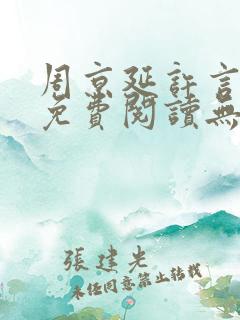 周京延許言
免費閱讀無
張建光
未任同意禁止轉載